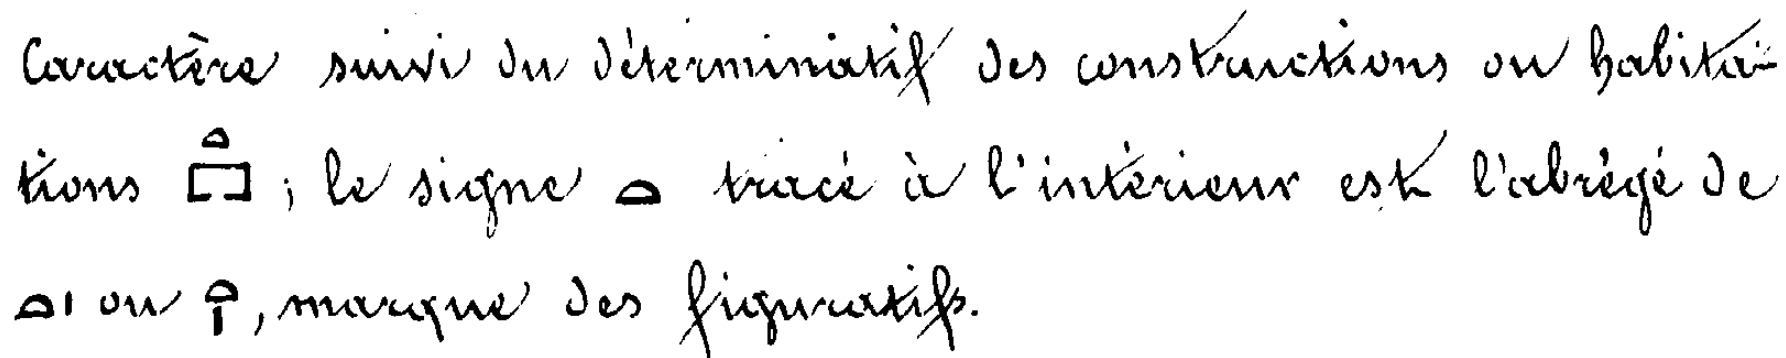 Caractère suivi du déterminatif des constructions ou habita-
tions 𓏏𓉐 ; le signe 𓏏 tracé à l'intérieur est l'abrégé de
𓏏𓏤 ou 𓏏𓏤, marque des figuratifs.